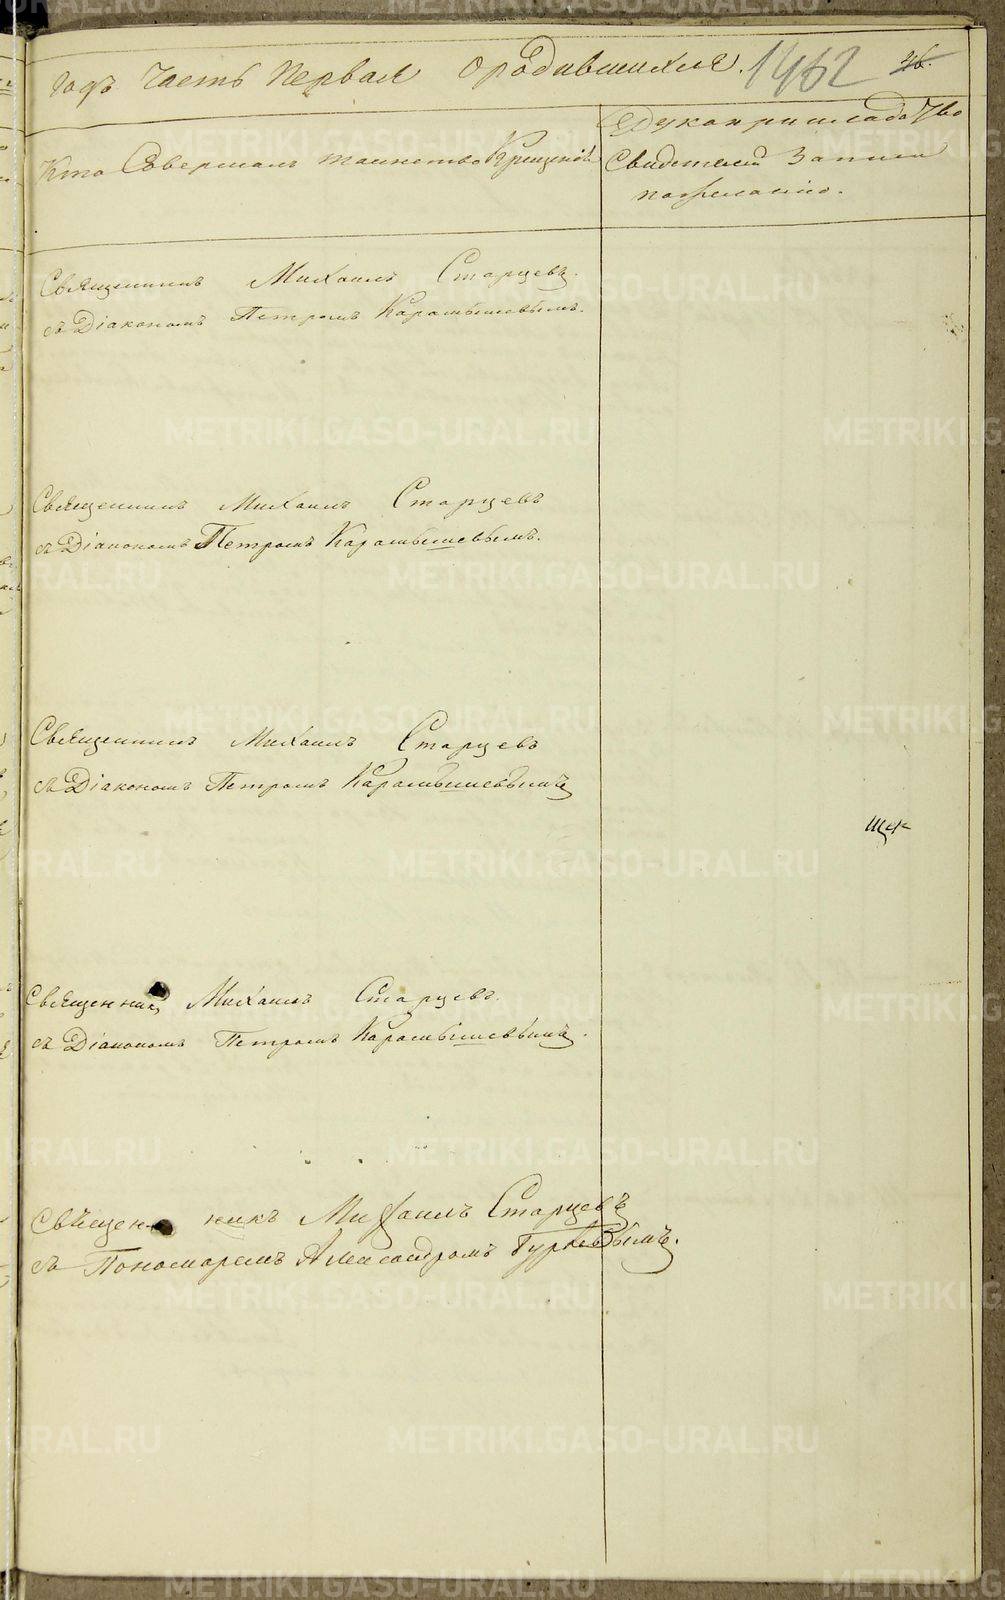 годъ Часть Первая о родившихся. 1462 26.
Кто Совершалъ таинство Крещенія
Рукоприкладство
Свидетелей Записи
по желанію.
Священникъ Михаилъ Старцевъ.
съ Діакономъ Петромъ Карамышевымъ.
Священникъ Михаилъ Старцевъ
съ Діакономъ Петромъ Карамышевымъ.
Священникъ Михаилъ Старцевъ
съ Діакономъ Петромъ Карамышевымъ
Священникъ Михаилъ Старцевъ.
съ Діакономъ Петромъ Карамышевымъ.
Священникъ Михаилъ Старцевъ
съ Пономаремъ Александромъ
METRIKI.GASO-URAL.RU